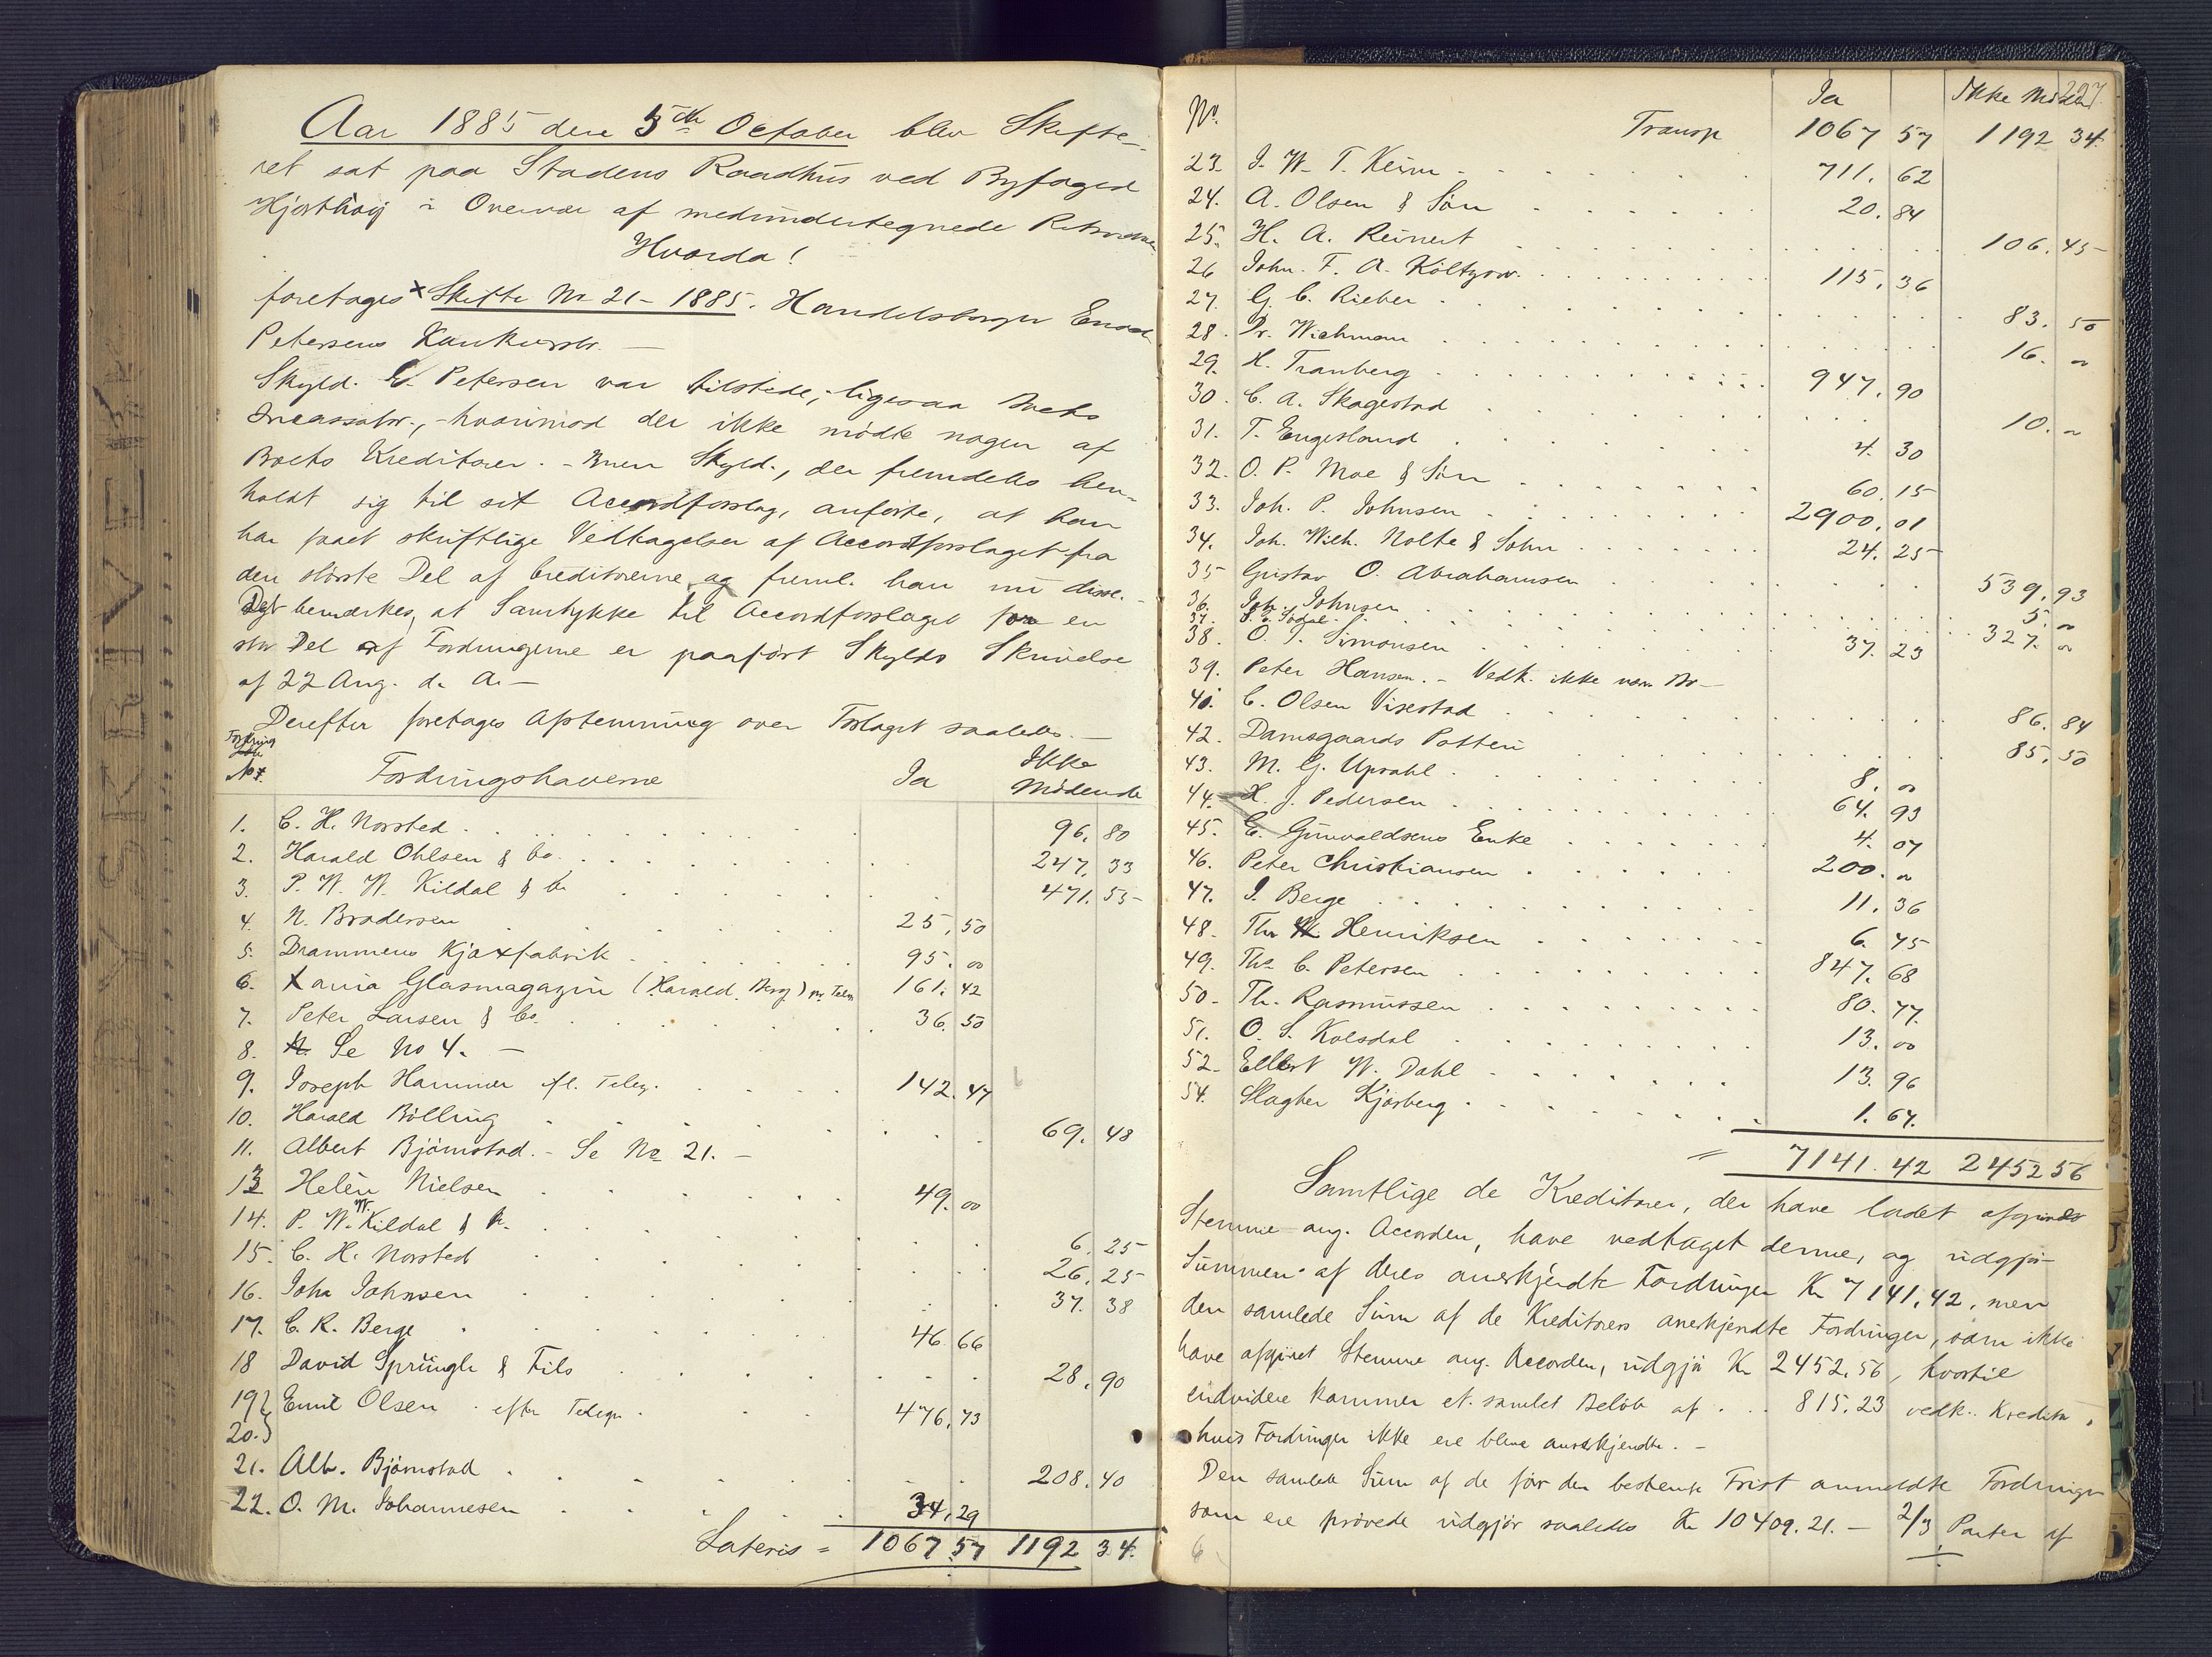 Aar 1885 den 5te October blev Skifte-
ret sat paa Stadens Raadhus ved Byfoged
Hjorthøy i Overvær af medundertegnede
Hvorda!
foretoges Skifte No 21 - 1885. Handelsborger
Petersens Konkursbo. -
Skyld. E. Petersen var tilstede, ligesaa Boets
Incassator, - hvorimod der ikke mödte nogen af
Boets Kreditorer. - Skyld., der fremdeles hen-
holdt sig til sit Accordforslag, anförte, at han
har faaet skriftlige Vedtagelser af Accordforslaget fra
den störste Del af Creditorerne, og freml. han nu disse. -
Det bemærkes, at Samtykke til Accordforslaget for en
stor Del af Fordringerne er paafört Skylds Skrivelse
af 22 Aug. d. A. -
Derefter foretoges Afstemning over Forslaget saaledes. -
Fordring
No. Fordringshaverne Ja Ikke
Mödende
1. C. H. Norsted 96. 80
2. Harald Ohlsen & Co. 247. 33
3. P. W. W. Kildal & Co 471. 55
4. N. Brodersen 25. 50
5. Drammens Kjøxfabrik 95. 00
6. Xania Glasmagazin (Harald Berg) pr. Telegr 161. 42
7. Peter Larsen & Co. 36. 50
8. Se No 4. -
9. Joseph Hammer efl. Teleg. 142. 47
10. Harald Bölling 69. 48
11. Albert Bjömstad. - Se No 21. -
13 Helén Nielsen 49. 00
14. P. W. W. Kildal & Co. 6. 25
15. C. H. Norsted 26. 25
16. John Johnsen 37. 38
17. C. R. Berge 46 66
18 David Sprüngli & Fils 28. 90
19 Emil Olsen efter Telegr. 476. 73
20.
21. Alb. Bjömstad 208. 40
22. O. M. Johannesen 34. 29
Lateris = 1067 57 1192 34.
227
No. Ja Ikke Mödende
Transp 1067 57 1192 34.
23. J. W. T. Keim 711. 62
24. A. Olsen & Sön 20. 84
25. H. A. Reinert 106. 45
26 John. F. A. Költzow. 115. 36
27. G. C. Rieber 83. 50
28. Dr. Wichman 16. 00
29. H. Tranberg 947. 90
30. C. A. Skagestad 10. 00
31. T. Engesland 4. 30
32. O. P. Moe & Sön 60. 15
33. Joh. P. Johnsen 2900. 01
34. Joh. Wilh. Nolte & Sohn 24. 25
35 Gustav O. Abrahamsen 539. 93
36. Joh. Johnsen 5. 00
37. Södal 327. 00
38. O. J. Simonsen 37. 23
39. Peter Hansen. - Vedk. ikke Bo -
40. C. Olsen Vixestad 86. 84
42. Damsgaards Potteri 85. 50
43. M. G. Upvahl 8. 00
44. H. J. Pedersen 64. 93
45. E. Gunvaldsens Enke 4. 07
46. Peter Christiansen 200. 00
47. J. Berge 11. 36
48. Thr Henriksen 6. 45
49. Ths C. Petersen 847. 68
50. Th. Rasmussen 80. 77
51. O. S. Kolsdal 13. 00
52. Ellert W. Dahl 13. 96
54. Slagter Kjösberg 1. 67.
= 7141. 42 2452 56
Samtlige de Kreditorer, der have ladet afgivet
Stemme ang. Accorden, have vedtaget denne, og udgjör
Summen af deres anerkjendte Fordringer Kr 7141,42, men
den samlede Sum af de Kreditorers anerkjendte Fordringer, som ikke
have afgivet Stemme ang. Accorden, udgjör Kr 2452,56, hvortil
endvidere kommer et samlet Belöb af . . 815.23 vedk. Kreditor,
hvis Fordringer ikke ere blevne anerkjendte. -
Den samlede Sum af de för den bestemte Frist anmeldte Fordringer
som ere prövede udgjör saaledes Kr 10409.21. - 2/3 Parter af